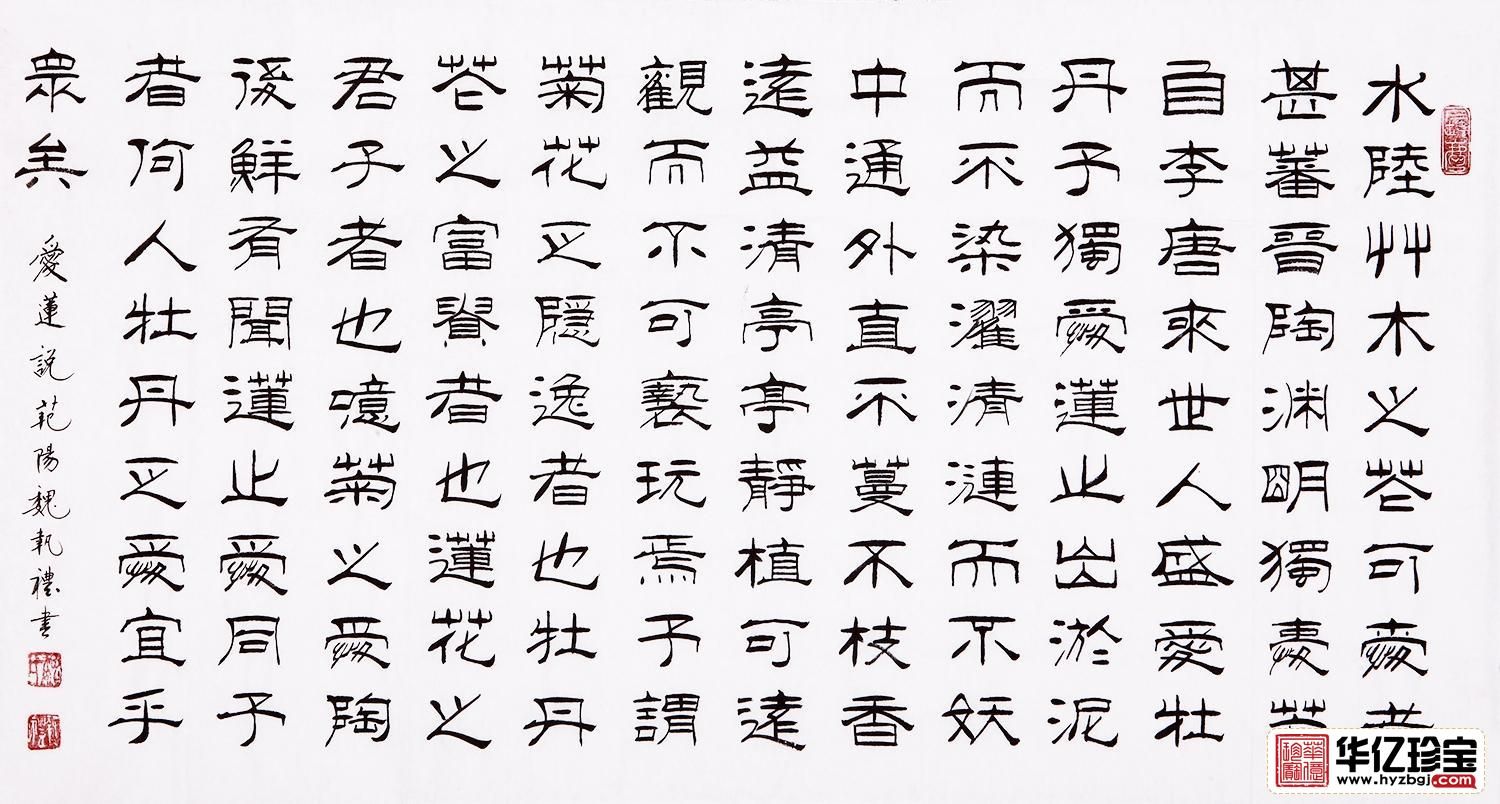 水陸艸木之花可愛者
甚蕃晉陶渊明獨愛菊
自李唐來世人盛愛牡
丹予獨愛蓮之出淤泥
而不染濯清漣而不妖
中通外直不蔓不枝香
遠益清亭亭靜植可遠
觀而不可褻玩焉予謂
菊花之隱逸者也牡丹
花之富貴者也蓮花之
君子者也噫菊之愛陶
後鮮有聞蓮之愛同予
者何人牡丹之愛宜乎
眾矣
愛蓮説範陽魏執禮書
華億珍寶
华亿珍宝
www.hyzbgj.com